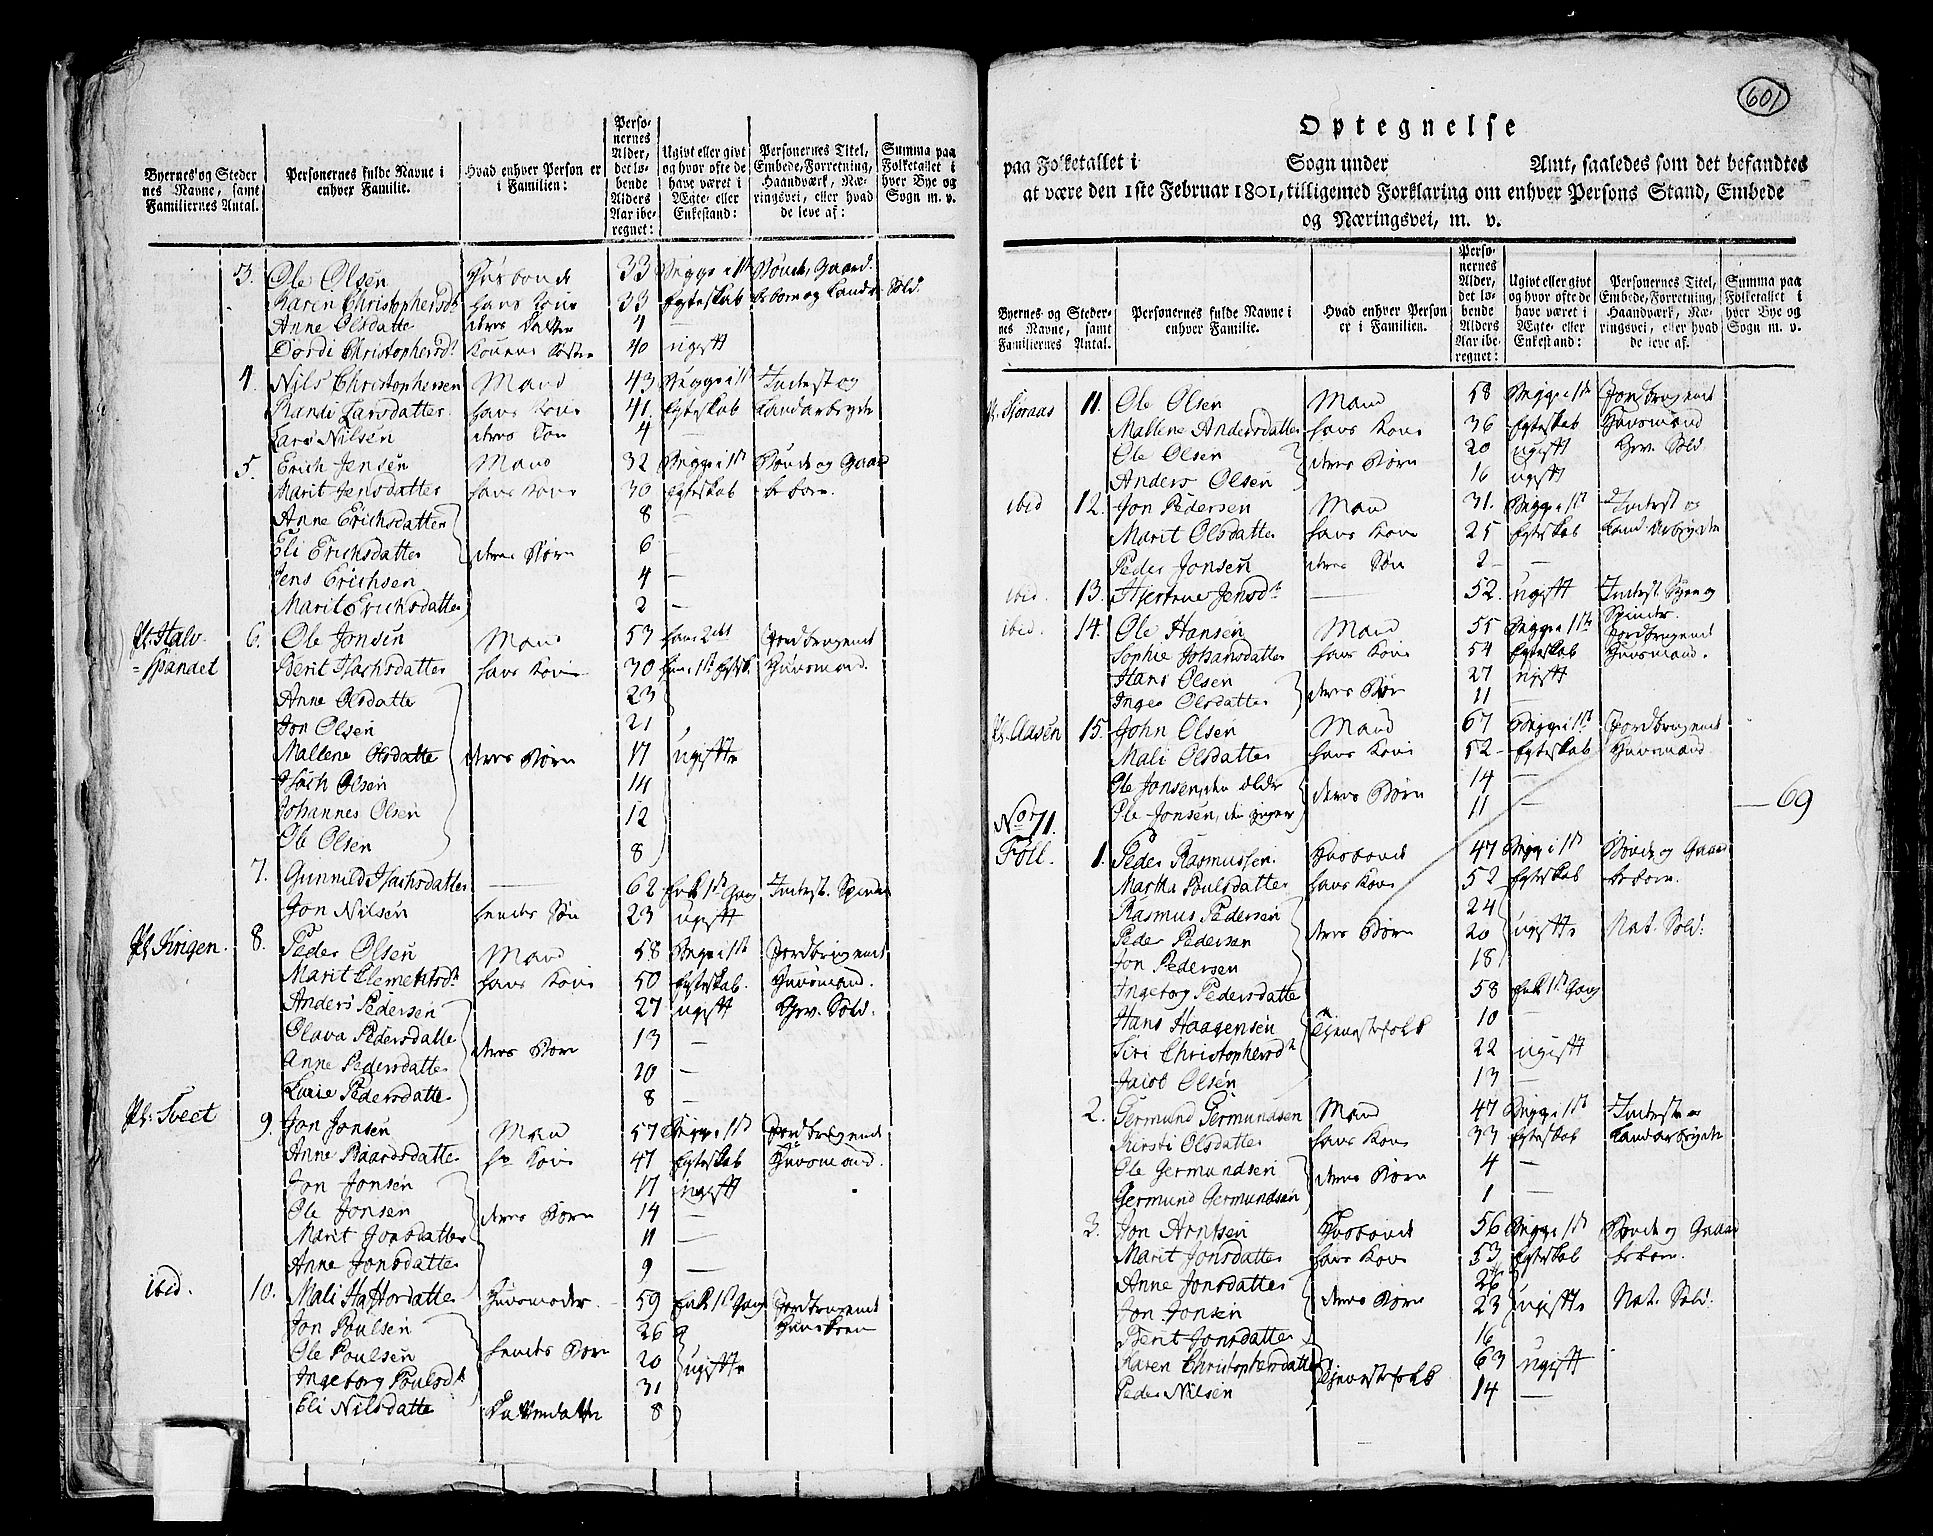 Byernes og Steder
nes Navne, samt
Familiernes Antal.
Personernes fulde Navne i
enhver Familie.
Hvad enhver Person er
i Familien:
Perso-
nernes
Alder,
det lø-
bende
Alders
Aar ibe-
regnet:
Ugivt eller givt
og hvor ofte de
have været i
Ægte- eller
Enkestand:
Personernes Titel,
Embede, Forretning,
Haandværk, Næ-
ringsvei, eller hvad
de leve af:
Summa paa
Folketallet i
hver Bye og
Sogn m. v.
3. Ole Olsen Husbonde 33 Begge i 1st Bonde, Gaard-
Karen Christophersd. hans Kone 33 Egteskab beboer og Landv. Sold.
Anne Olsdatte deres Datter 4 —
Dordi Christophersd. Konens Søster 40 ugift
4. Nils Christophersen Mand 43 Begge i 1st Inderst og
Randi Larsdatter hans Kone 41 Egteskab Landarbeyde
Lars Nilsen deres Søn 4 —
5. Erich Jensen Mand 32 Begge i 1st Bonde og Gaard
Marit Jensdatter hans Kone 30 Egteskab beboer.
Anne Erichsdatter 8 —
Eli Erichsdatter deres Børn 6 —
Jens Erichsen 4 —
Marit Erichsdatter 2 —
Pl. Halv-
=spandet 6. Ole Jonsen Mand 53 han 2det Jordbrugende
Berit Isachsdatter hans Kone 30 hun 1st Egtesk. Huusmand.
Anne Olsdatte 23
Jon Olsen 21
Mallene Olsdatte deres Børn 17 ugifte
Isach Olsen 14
Johannes Olsen 12
Ole Olsen 8
7. Gunnild Isachsdatter — 62 Enk 1st Gang Inderst. Spinder
Jon Nilsen hendes Søn 23 ugift
Pl. Kingen. 8. Peder Olsen Mand 58 Begge i 1st Jordbrugende
Marit Clemetsd. hans Kone 50 Egteskab. Huusmand.
Anders Pedersen 27 ugift Gev. Sold.
Olava Pedersdatte deres Børn 13 —
Anne Pedersdatter 10 —
Lucie Pedersdatter 8 —
Pl. Sveet 9. Jon Jonsen Mand 57 Begge i 1st Jordbrugende
Anne Baardsdatter hs Kone 47 Egteskab Huusmand.
Jon Jonsen 17 ugift
Ole Jonsen deres Børn 14 —
Marit Jonsdatter 11 —
Anne Jonsdatter 9 —
ibid. 10. Mali Haftordatter Huusmoder. 59 Enk 1st Gang Jordbrugende
Jon Poulsen 26 Huuskone
Ole Poulsen hendes Børn 20 ugifte
Ingeborg Poulsd. 31
Eli Nilsdatte Datterdatter 8
601
Optegnelse
paa Folketallet i Sogn under Amt, saaledes som det befandtes
at være den 1ste Februar 1801, tilligemed Forklaring om enhver Persons Stand, Embede
og Næringsvei, m. v.
Byernes og Steder-
nes Navne, samt
Familiernes Antal.
Personernes fulde Navne i
enhver Familie.
Hvad enhver Person
er i Familien.
Perso-
nernes
Alder,
det lø-
bende
Alders
Aar ibe-
regnet:
Ugivt eller givt
og hvor ofte de
have været i
Ægte- eller
Enkestand:
Personernes Titel,
Embede, Forretning,
Haandværk, Næ-
ringsvei, eller hvad
de leve af.
Summa paa
Folketallet i
hver Bye og
Sogn m. v.
11. Ole Olsen Mand 58 Begge i 1st Jordbrugende
Mallene Andersdatter hans Kone 36 Egteskab Huusmand
Ole Olsen 20 ugift Gev. Sold
Anders Olsen deres Børn 16 ugift
ibid 12. Jon Pedersen Mand 31. Begge i 1st Inderst og
Marit Olsdatter hans Kone 25 Egteskab Land Arbeyde
Peder Jonsen deres Søn 2 —
ibid. 13. Jensd. — 52. ugift Inderst. Sye og
Spinder.
ibid. 14. Ole Hansen Mand 55 Begge i 1ste Jordbrugende
Sophie Johansdatter hans Kone 54 Egteskab Huusmand.
Hans Olsen 27 ugift
Inger Olsdatter deres Børn 11 —
Pl. Aasen 15. John Olsen Mand 67 Begge i 1st Jordbrugende
Mali Olsdatter hans Kone 52 Egteskab Huusmand.
Ole Jonsen, den ældre 14 —
Ole Jonsen, den yngre deres Børn 11 — — 69
No 71.
Foll. 1. Peder Rasmussen. Husbonde 47 Begge i 1st Bonde og Gaard
Martha Poulsdatter hans Kone 52 Egteskab beboer.
Rasmus Pedersen 24
Peder Pedersen deres Børn 20 ugifte Nat. Sold:
Jon Pedersen 18
Ingeborg Pedersdatte 58 Enk 1st Gang
Hans Haagensen Tjenestefolk 10
Siri Christophersd. 22 ugift
Jacob Olsen 13 —
2. Germund Germundsen Mand 47 Begge i 1st Inderst og
Kirsti Olsdatter hans Kone 33 Egteskab Landarbeyde
Ole Germundsen 4 —
Germund Germundsen deres Børn 1 —
3. Jon Arntsen Husbonde 56 Begge i 1st Bonde og Gaard
Marit Jonsdatter hans Kone 53 Egteskab beboer.
Anne Jonsdatter 26
Jon Jonsen deres Børn 23 ugifte Nat. Sold:
Berit Jonsdatter 16
Karen Christophersdatter Tjenestefolk 63 ugift
Peder Nilsen 14 —